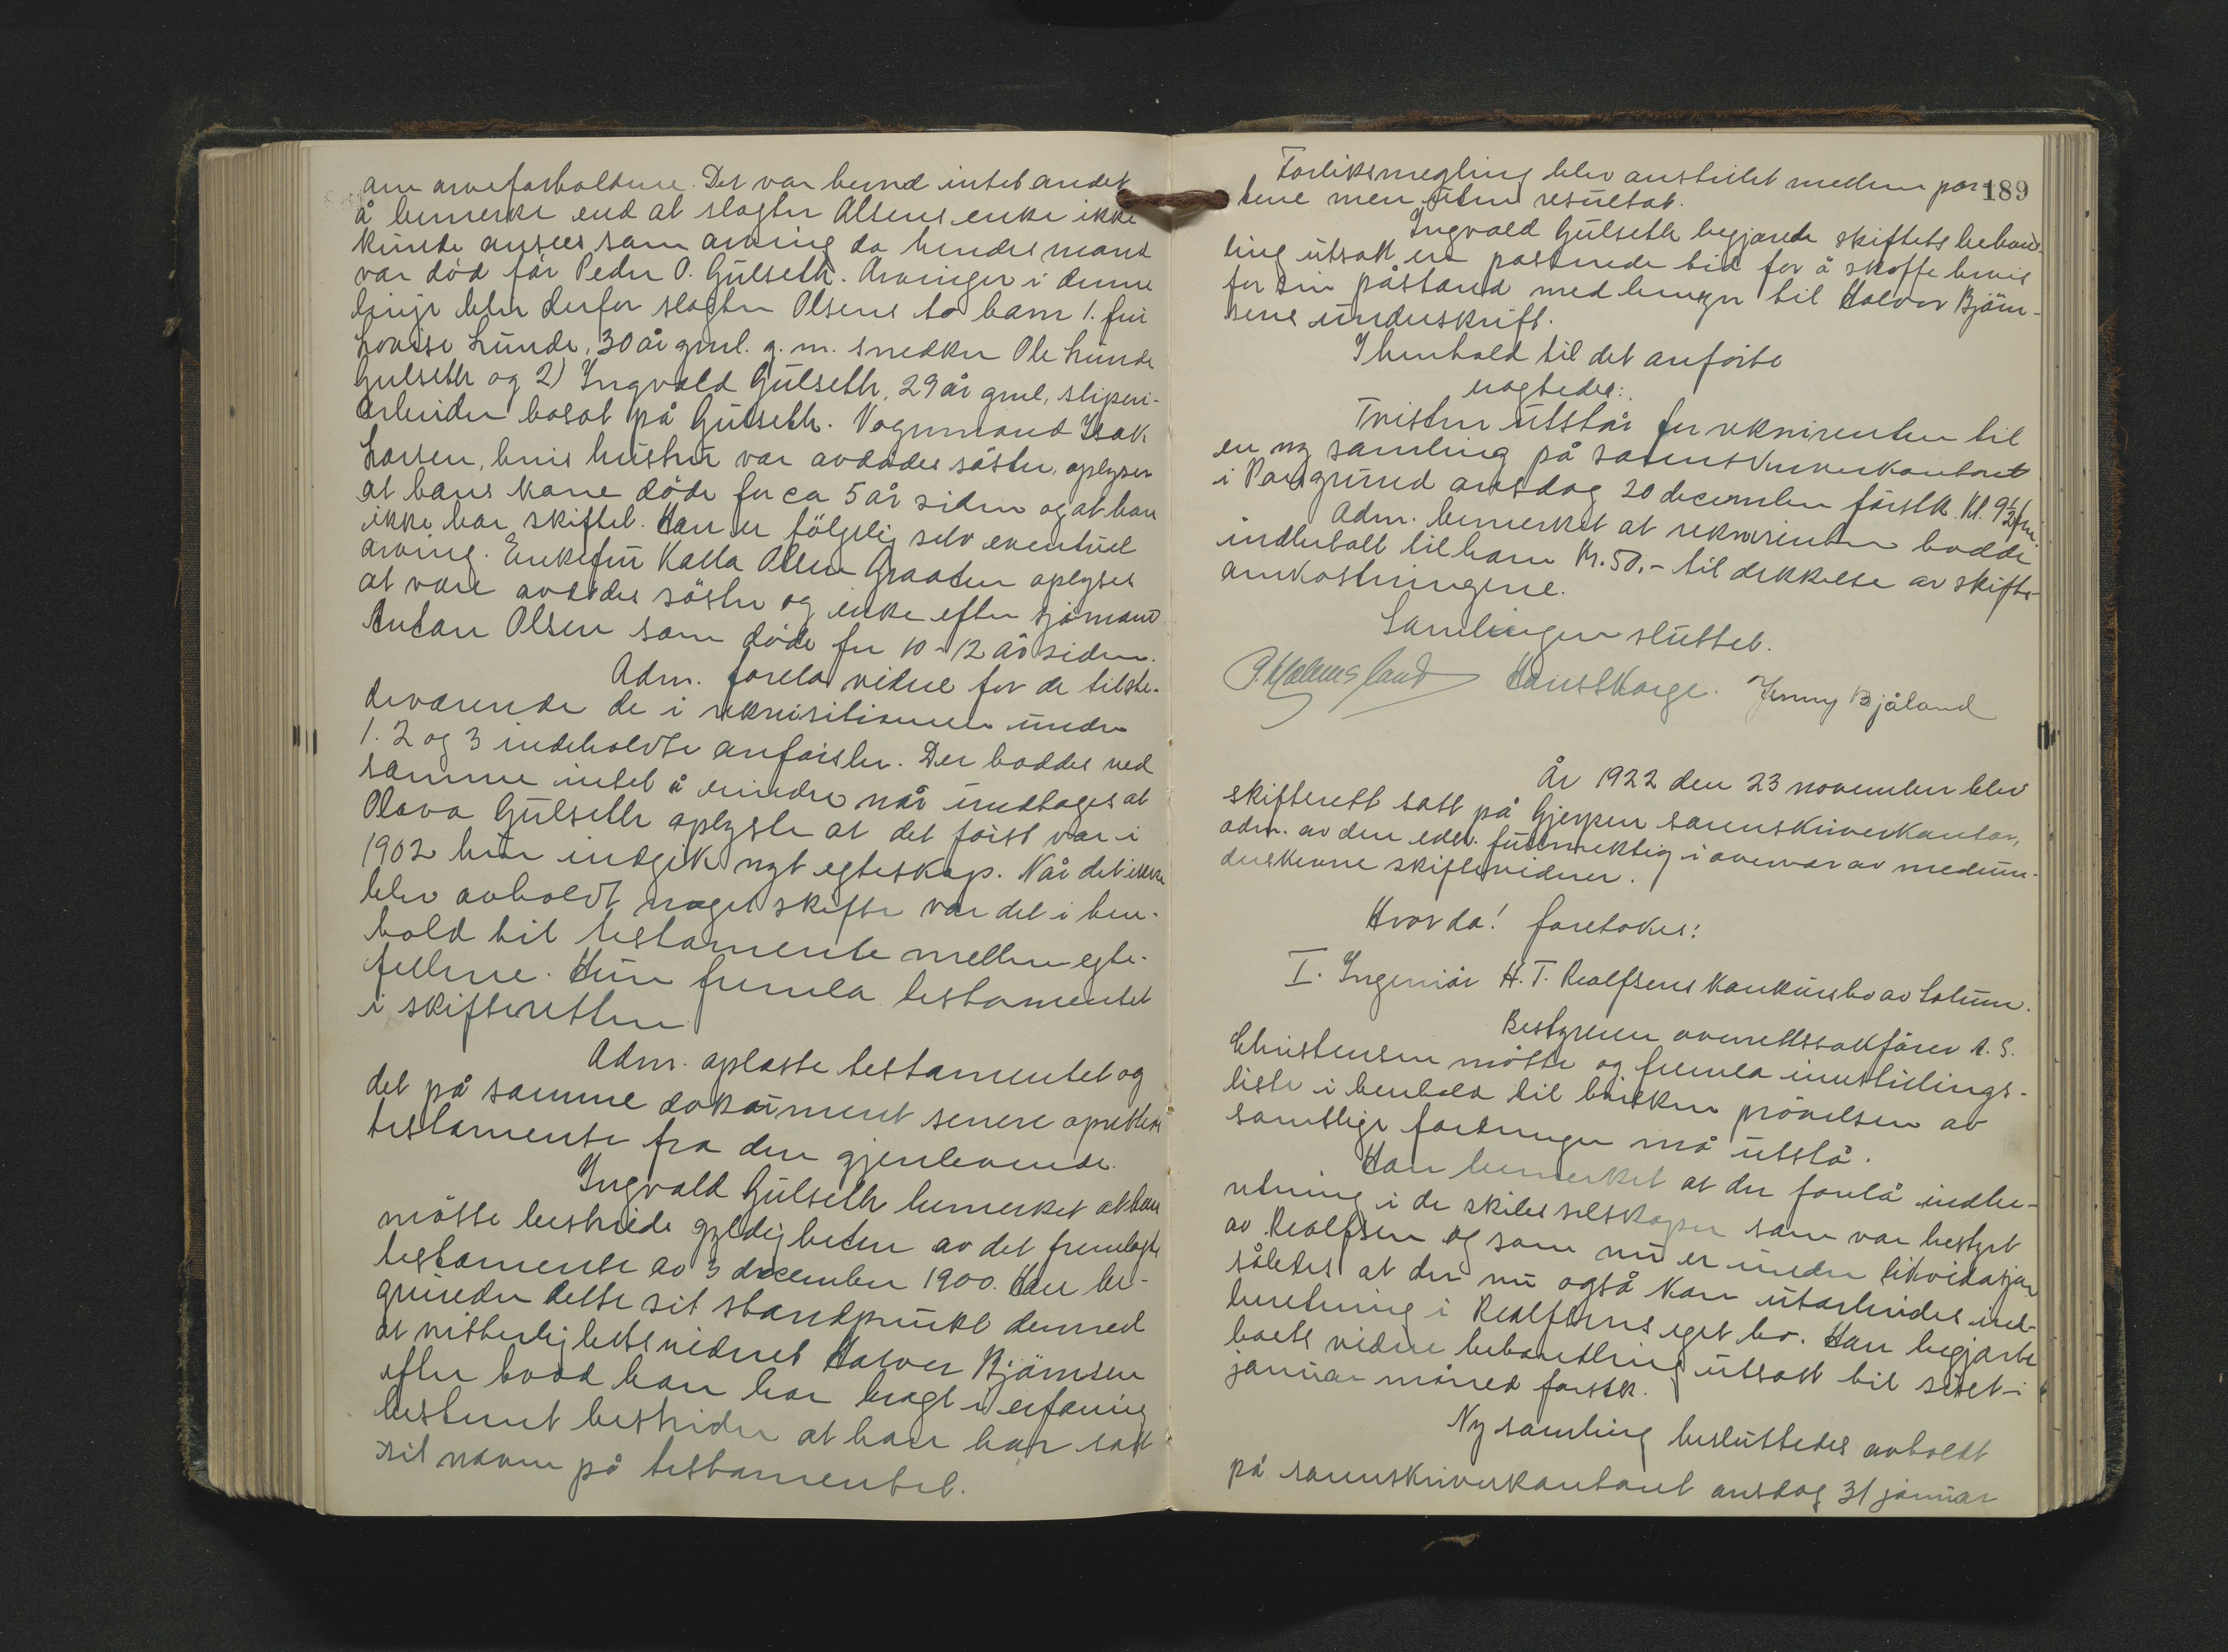 om arveforholdene. Det var herved intet andet
å bemerke end at slagter Olsens enke ikke
kunde ansees som arving da hendes mand
var död för Peder O. Gulseth. Arvinger i denne
linje blir derfor slagter Olsens to barn 1. fru
Lovise Lunde, 30 år gml. g. m. snedker Ole Lunde
Gulseth og 2) Ingvald Gulseth, 29 år gml, sliperi-
arbeider bosat på Gulseth. Vognmand Isak
Larsen, hvis hustru var avdödes söster, oplyser
at hans kone döde for ca 5 år siden og at han
ikke har skiftet. Han er fölgelig selv eventuel
arving. Enkefru Kalla Olsen Graaten oplyses
at være avdödes söster og enke efter sjömand
Anton Olsen som döde for 10-12 år siden.
Adm. forela videre for de tilste-
deværende de i rekvisitionen under
1. 2 og 3 indeholdte anförsler. Der hadde ved
samme intet å erindre når undtages at
Olava Gulseth oplyste at det först var i
1902 hun indgik nyt egteskap. Når det ikke
blev avholdt noget skifte var det i hen-
hold til testamente mellem egte-
fellene. Hun fremla testamentet
i skifteretten
Adm. oplæste testamentet og
det på samme dokument senere oprettede
testamente fra den gjenlevende.
Ingvald Gulseth bemerket at han
måtte bestride gyldigheten av det fremlagte
testamente av 3 december 1900. Han be-
grunder dette sit standpunkt dermed
at vitterlighetsvidnet Halvor Bjömsen
efter hvad han har bragt i erfaring
bestemt bestrider at han har satt
sit navn på testamentet.
189
Forliksmegling blev anstillet mellem par-
tene men uten resultat.
Ingvald Gulseth begjærede skiftets behand-
ling utsatt en passende tid for å skaffe bevis
for sin påstand med hensyn til Halvor Bjöm-
sens underskrift.
I henhold til det anförte
eragtedes:
Tvisten utstår for rekvirenten til
en ny samling på sorenskriverkontoret
i Porsgrund onsdag 20 december förstk. kl. 9½ fm.
Adm. bemerket at rekvirenten hadde
indbetalt til ham kr. 50,- til dekkelse av skifte-
omkostningene.
Samlingen sluttet.
Holmesland Hans Korge. Jenny Bjåland
År 1922 den 23 november blev
skifterett satt på Gjerpen sorenskriverkontor,
adm. av den edsv. fuldmektig i overvær av medun-
derskrevne skiftevidner.
Hvor da! foretokes:
I. Ingeniör H. T. Realfsens konkursbo av Solum.
Bestyreren overrettssakförer A. S.
Christensen mötte og fremla innstillings-
liste i henhold til hvilken prövelsen av
samtlige fordringer må utstå.
Han bemerket at der forelå indbe-
retning i de skibsselskaper som var bestyrt
av Realfsen og som nu er under likvidasjon
således at der nu også kan utarbeides ind-
beretning i Realfsens eget bo. Han begjærte
boets videre behandling utsatt til sidst i
januar måned förstk.
Ny samling besluttedes avholdt
på sorenskriverkontoret onsdag 31 januar